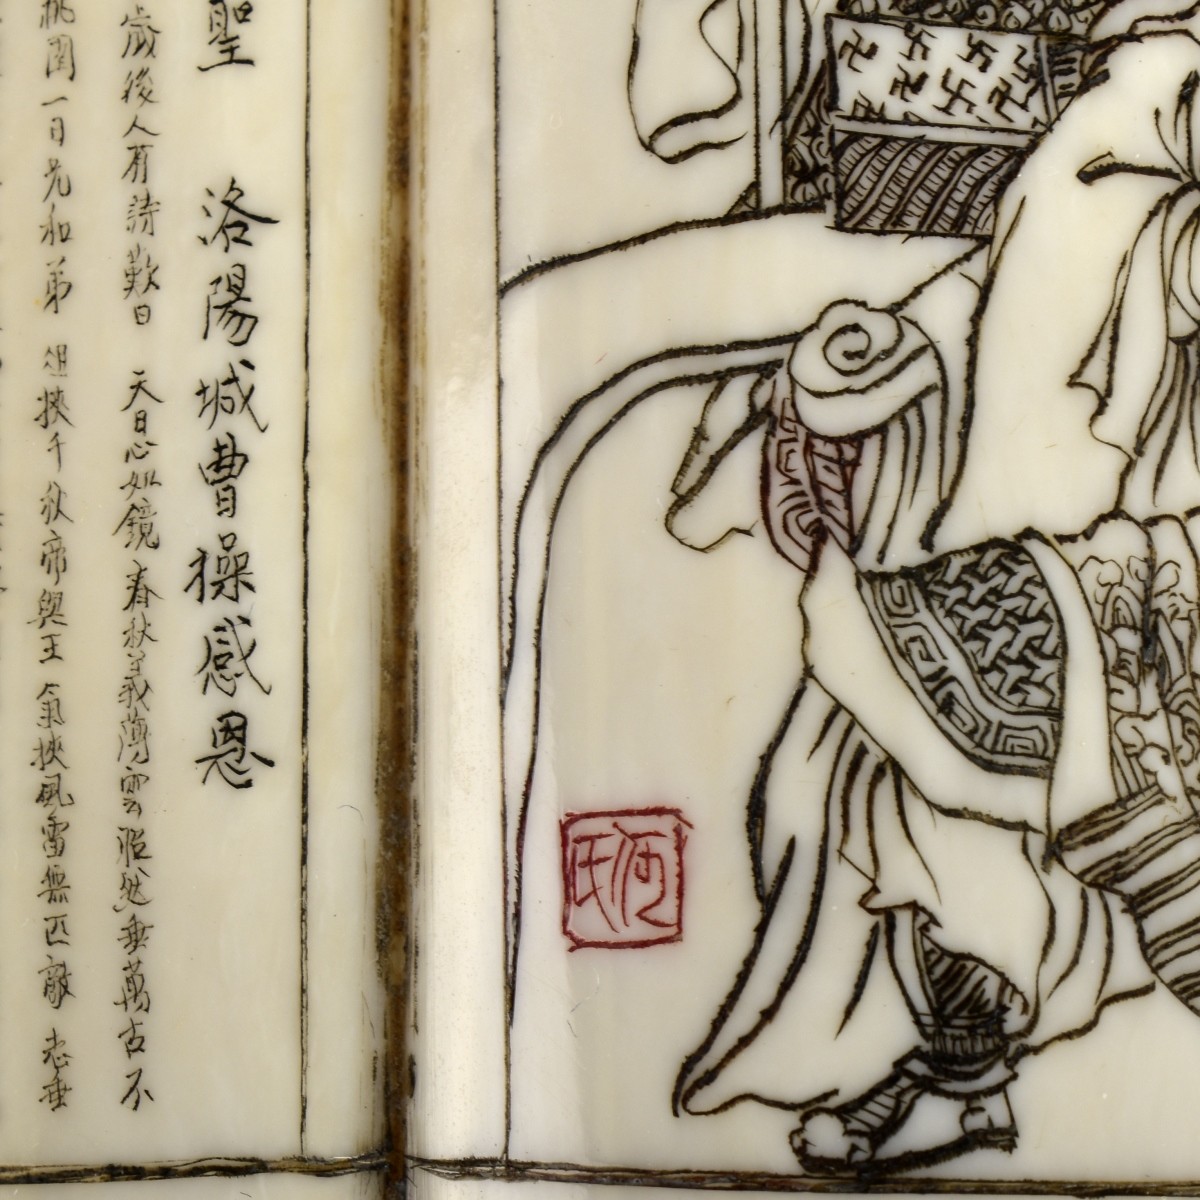 聖 洛陽城曹操感恩
歲後人有詩歎曰 天日心如鏡春秋義薄雲昭然垂萬古不
桃園一日兄和弟 俎挾千秋帝與王 氣挾風雷無匹敵 志垂
氏